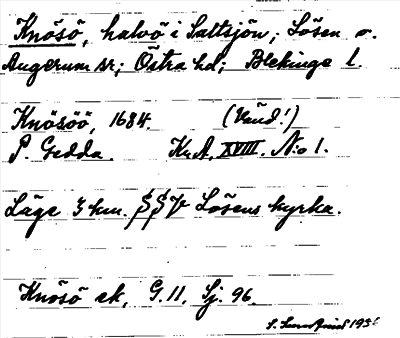 Knösö, halvö i Saltsjön; Lösen o.
Augerum sr; Östra hd; Blekinge l.
Knösöö, 1684. (Vänd!)
P. Gedda. Kr.A. XVIII. N:o 1.
Läge 3 km. SSV Lösens kyrka.
Knösö ek, G.11, Sj. 96.
S. 1936